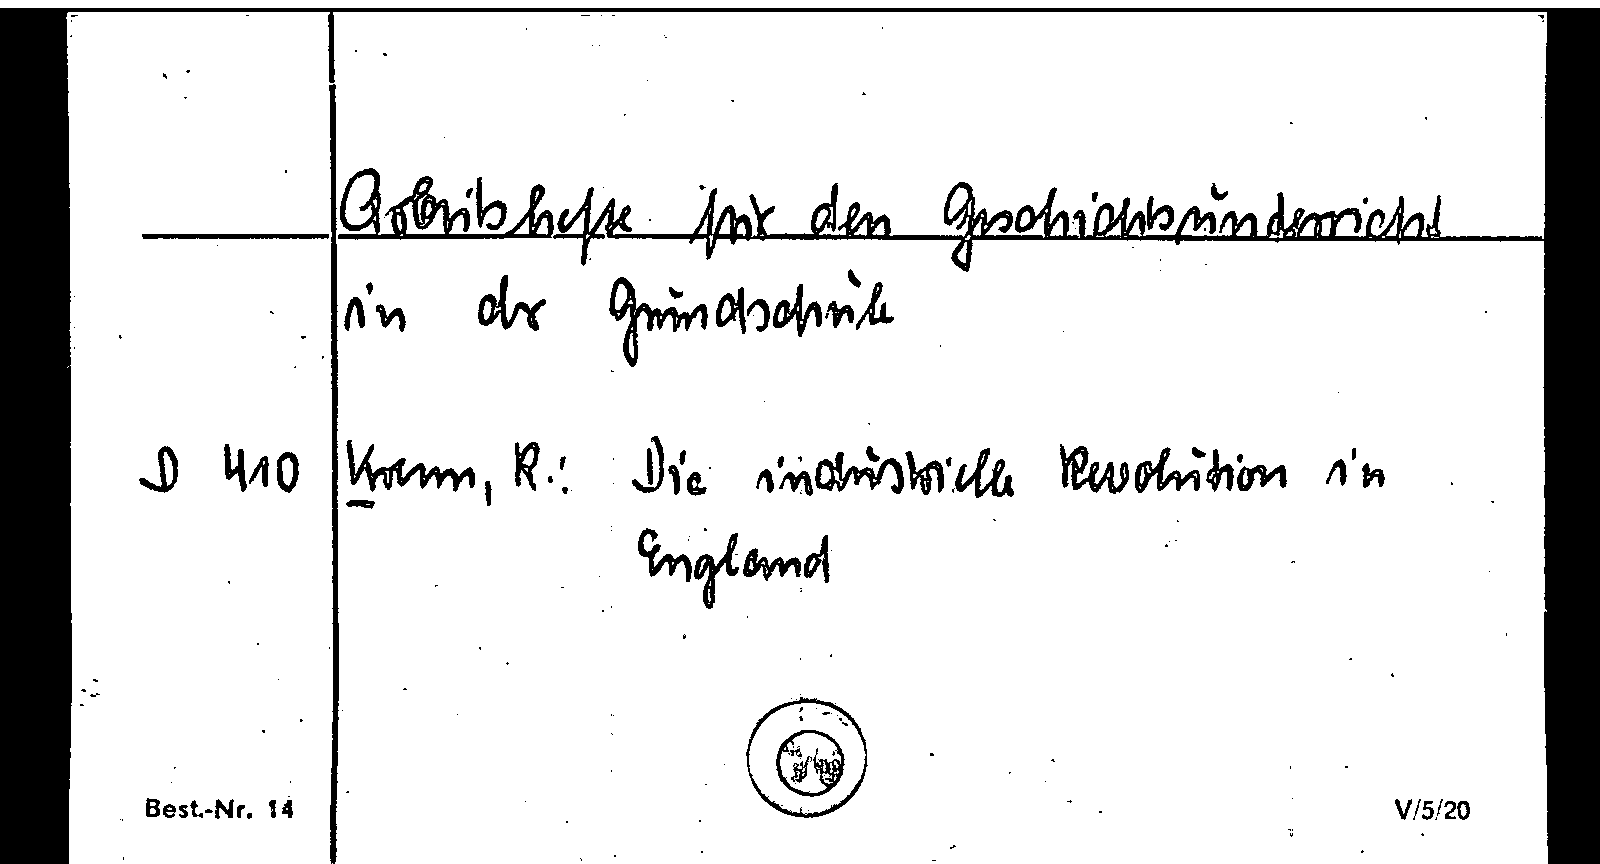 Arbeitshefte für den Geschichtsunterricht
in der Grundschule
D 410 Kramm, R.: Die industrielle Revolution in
England
Best.-Nr. 14 V/5/20